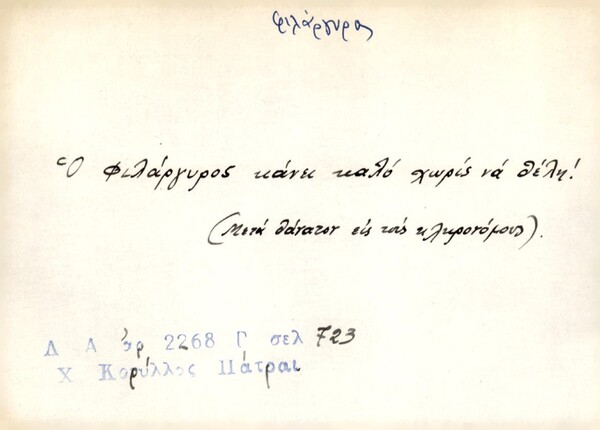 φιλάργυρος
Ὁ φιλάργυρος κάνει καλό χωρίς νά θέλη!
(Μετά θάνατον εἰς τούς κληρονόμους).
Λ Α ἀρ 2268 Γ σελ 723
Χ Κορύλλος Πάτραι